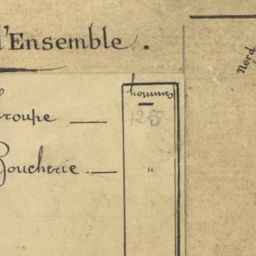 l'Ensemble.
hommes
Troupe — 125
Boucherie. — "
Nord